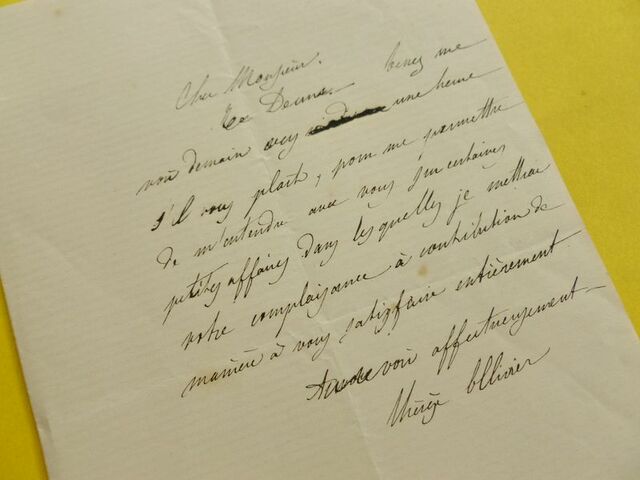 Cher Monsieur.
Te Deum. Venez me
voir demain une heure
s'il vous plait, pour me permettre
de m'entendre avec vous sur certaines
petites affaires dans lesquelles je mettrai
votre complaisance à contribution de
manière à vous satisfaire entièrement.
Au revoir affectueusement
Ollivier